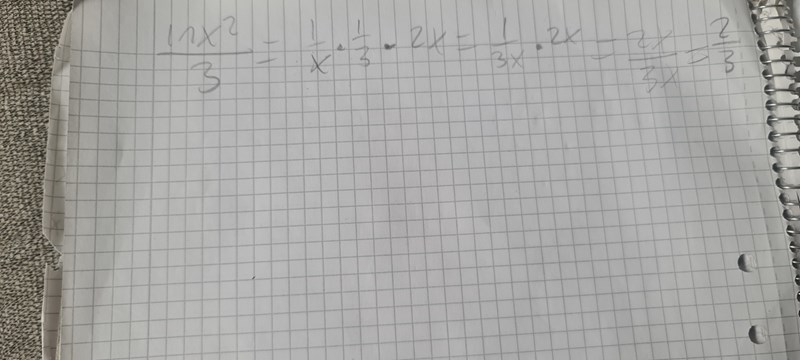 lnx²/3 = 1/x · 1/3 · 2x = 1/3x · 2x = 2x/3x = 2/3